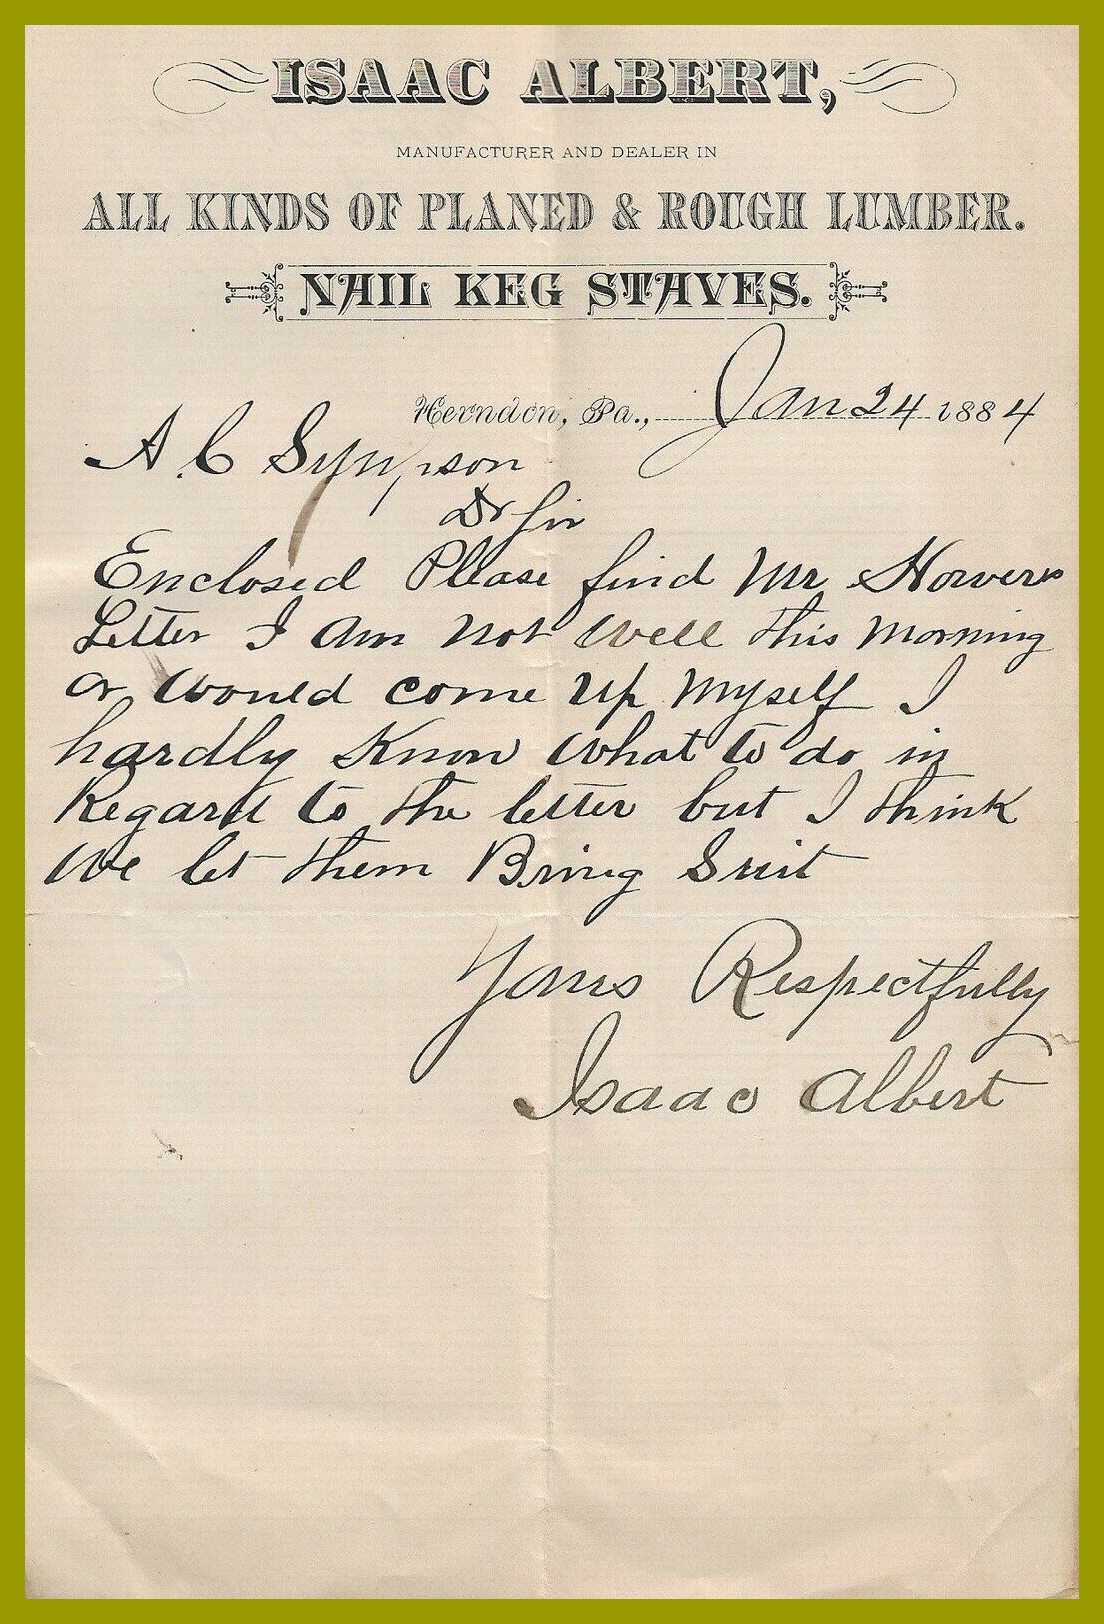 ISAAC ALBERT,
MANUFACTURER AND DEALER IN
ALL KINDS OF PLANED & ROUGH LUMBER.
NAIL KEG STAVES.
Herndon, Pa., Jan 24 1884
A C Sympson
Dr Sir
Enclosed Please find Mr Howers
Letter I Am Not Well this Morning
or Would come Up Myself I
hardly Know What to do in
Regard to the letter but I think
We let them Bring Suit
Yours Respectfully
Isaac Albert